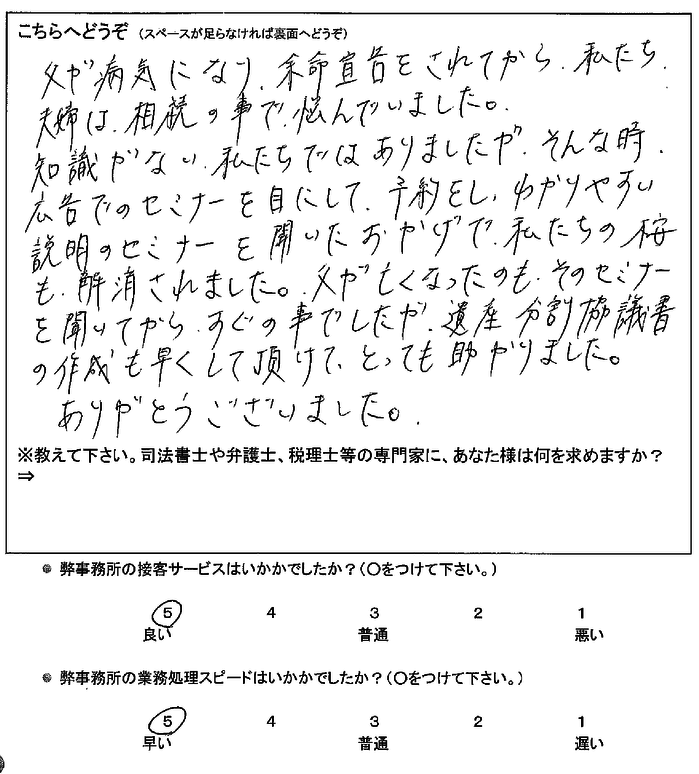 こちらへどうぞ（スペースが足らなければ裏面へどうぞ）
父が病気になり、余命宣告をされてから、私たち
夫婦は、相続の事で、悩んでいました。
知識がない、私たちではありましたが、そんな時、
広告でのセミナーを目にして、予約をし、わかりやすい
説明のセミナーを聞いたおかげで、私たちの
も、解消されました。父が亡くなったのも、そのセミナー
を聞いてから、すぐの事でしたが、遺産分割協議書
の作成も早くして頂けて、とっても助かりました。
ありがとうございました。
※教えて下さい。司法書士や弁護士、税理士等の専門家に、あなた様は何を求めますか？
⇒
● 弊事務所の接客サービスはいかかでしたか？（○をつけて下さい。）
5 4 3 2 1
良い 普通 悪い
● 弊事務所の業務処理スピードはいかかでしたか？（○をつけて下さい。）
5 4 3 2 1
早い 普通 遅い